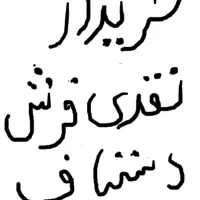 خریدار
نقدی فرش
دستباف